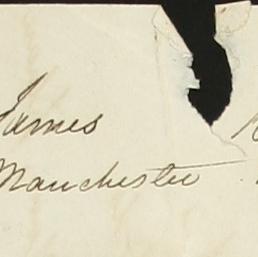 James
Manchester